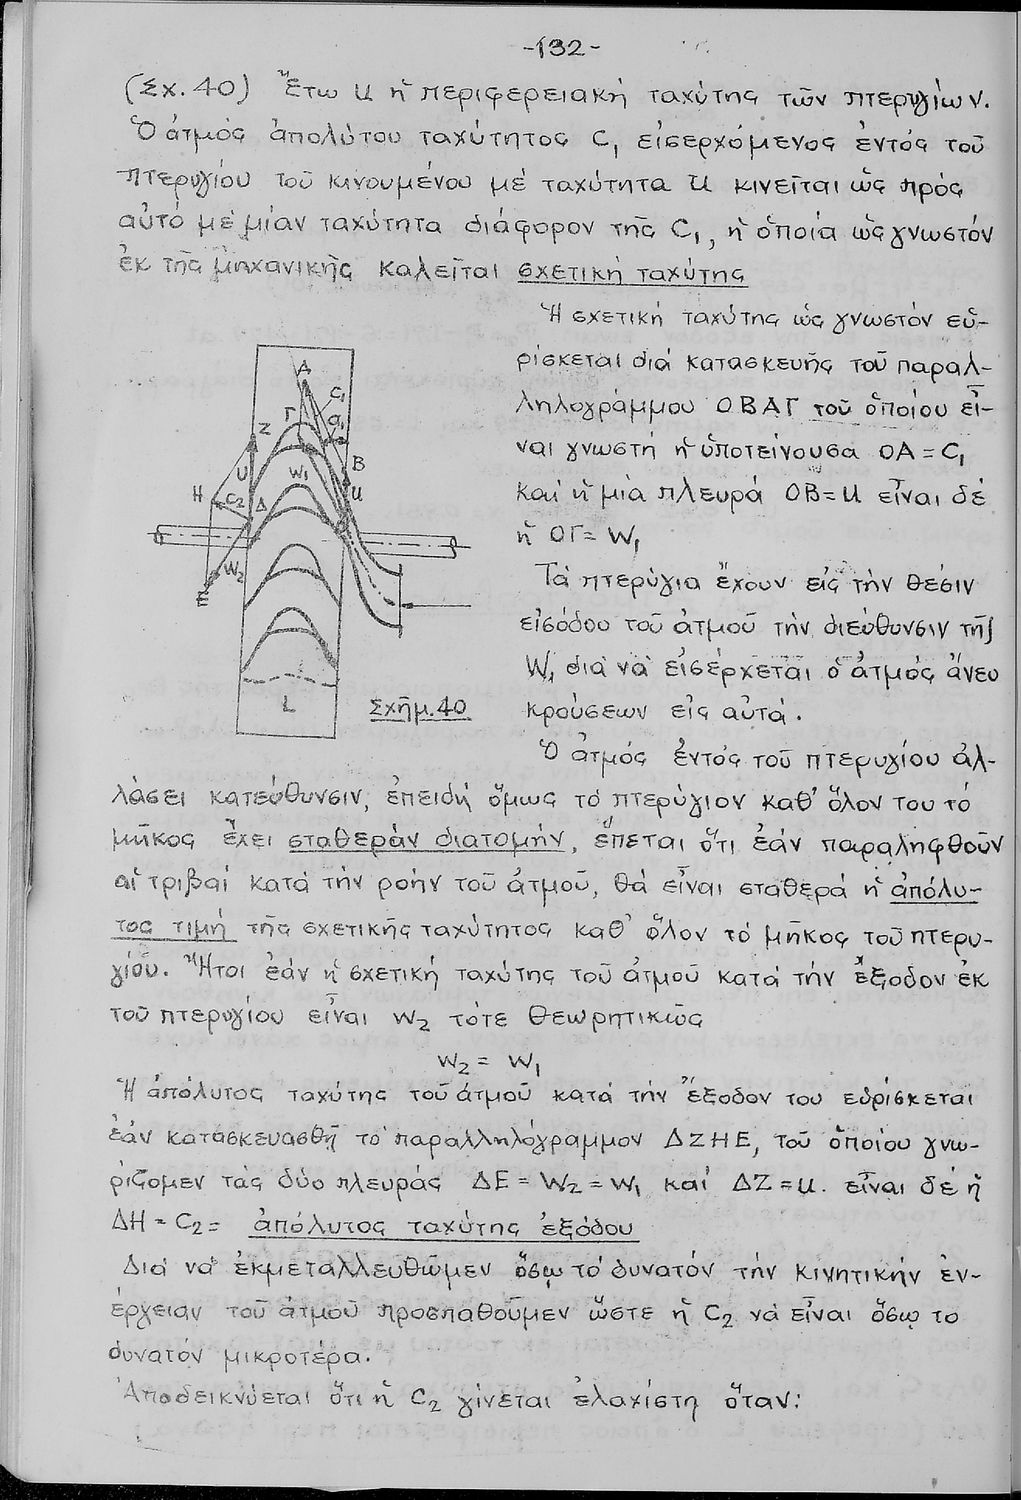 -132-
(Σχ. 40) Ἔτω u ἡ περιφερειακή ταχύτης τῶν πτερυγίων.
Ὁ ἀτμός ἀπολύτου ταχύτητος C₁ εἰσερχόμενος ἐντός τοῦ
πτερυγίου τοῦ κινουμένου μέ ταχύτητα u κινεῖται ὡς πρός
αὐτό μέ μίαν ταχύτητα διάφορον τῆς C₁, ἡ ὁποία ὡς γνωστόν
ἐκ τῆς μηχανικῆς καλεῖται σχετική ταχύτης
Ἡ σχετική ταχύτης ὡς γνωστόν εὑ-
ρίσκεται διά κατασκευῆς τοῦ παραλ-
ληλογράμμου ΟΒΑΓ τοῦ ὁποίου εἶ-
ναι γνωστή ἡ ὑποτείνουσα ΟΑ = C₁
καί ἡ μία πλευρά ΟΒ = u εἶναι δέ
ἡ ΟΓ = W₁
Τά πτερύγια ἔχουν εἰς τήν θέσιν
εἰσόδου τοῦ ἀτμοῦ τήν διεύθυνσιν τῆς
W₁ διά νά εἰσέρχεται ὁ ἀτμός ἄνευ
κρούσεων εἰς αὐτά.
A
C₁
Γ
α₁
Z
B
U
W₁
u
H
C₂
Δ
W₂
E
L
Σχῆμ. 40
Ὁ ἀτμός ἐντός τοῦ πτερυγίου ἀλ-
λάσει κατεύθυνσιν, ἐπειδή ὅμως τό πτερύγιον καθ' ὅλον του τό
μῆκος ἔχει σταθεράν διατομήν, ἕπεται ὅτι ἐάν παραληφθοῦν
αἱ τριβαί κατά τήν ροήν τοῦ ἀτμοῦ, θά εἶναι σταθερά ἡ ἀπόλυ-
τος τιμή τῆς σχετικῆς ταχύτητος καθ' ὅλον τό μῆκος τοῦ πτερυ-
γίου. Ἤτοι ἐάν ἡ σχετική ταχύτης τοῦ ἀτμοῦ κατά τήν ἔξοδον ἐκ
τοῦ πτερυγίου εἶναι W₂ τότε θεωρητικῶς
W₂ = W₁
Ἡ ἀπόλυτος ταχύτης τοῦ ἀτμοῦ κατά τήν ἔξοδον του εὑρίσκεται
ἐάν κατασκευασθῇ τό παραλληλόγραμμον ΔΖΗΕ, τοῦ ὁποίου γνω-
ρίζομεν τάς δύο πλευράς ΔΕ = W₂ = W₁ καί ΔΖ = u. εἶναι δέ ἡ
ΔΗ = C₂ = ἀπόλυτος ταχύτης ἐξόδου
Διά νά ἐκμεταλλευθῶμεν ὅσῳ τό δυνατόν τήν κινητικήν ἐν-
έργειαν τοῦ ἀτμοῦ προσπαθοῦμεν ὥστε ἡ C₂ νά εἶναι ὅσῳ το
δυνατόν μικροτέρα.
Ἀποδεικνύεται ὅτι ἡ C₂ γίνεται ἐλαχίστη ὅταν: